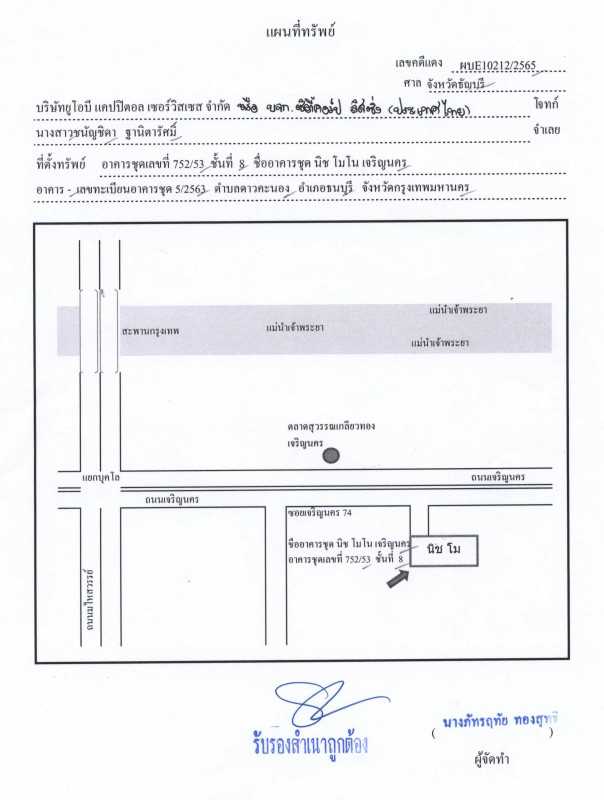 แผนที่ทรัพย์
เลขคดีแดง ผบE10212/2565
ศาล จังหวัดธัญบุรี
บริษัทยูโอบี แคปปิตอล เซอร์วิสเซส จำกัด หรือ บจก. ซิตี้คอร์ป ลิสซิ่ง (ประเทศไทย) โจทก์
นางสาวชนัญชิดา ฐานิตารัศมิ์ จำเลย
ที่ตั้งทรัพย์ อาคารชุดเลขที่ 752/53 ชั้นที่ 8 ชื่ออาคารชุด นิช โมโน เจริญนคร
อาคาร - เลขทะเบียนอาคารชุด 5/2563 ตำบลดาวคะนอง อำเภอธนบุรี จังหวัดกรุงเทพมหานคร
แม่น้ำเจ้าพระยา
สะพานกรุงเทพ
แม่น้ำเจ้าพระยา
แม่น้ำเจ้าพระยา
ตลาดสุวรรณเกลียวทอง
เจริญนคร
แยกบุคโล
ถนนเจริญนคร
ถนนเจริญนคร
ซอยเจริญนคร 74
ชื่ออาคารชุด นิช โมโน เจริญนคร
อาคารชุดเลขที่ 752/53 ชั้นที่ 8
นิช โม
ถนนมไหสวรรย์
รับรองสำเนาถูกต้อง
นางภัทรฤทัย ทองสุทธิ
( )
ผู้จัดทำ